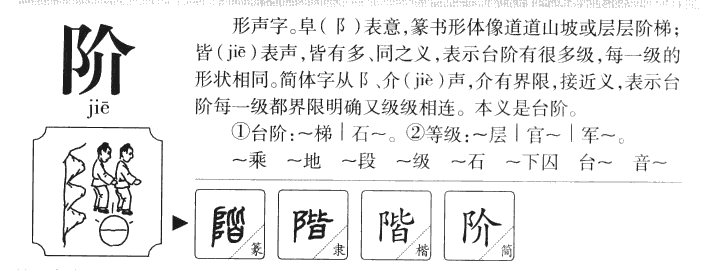 阶
jiē
形声字。阜(阝)表意,篆书形体像道道山坡或层层阶梯;
皆(jiē)表声,皆有多、同之义,表示台阶有很多级,每一级的
形状相同。简体字从阝、介(jiè)声,介有界限,接近义,表示台
阶每一级都界限明确又级级相连。本义是台阶。
①台阶:~梯|石~。②等级:~层|官~|军~。
~乘 ~地 ~段 ~级 ~石 ~下囚 台~ 音~
階 篆 階 隶 階 楷 阶 简